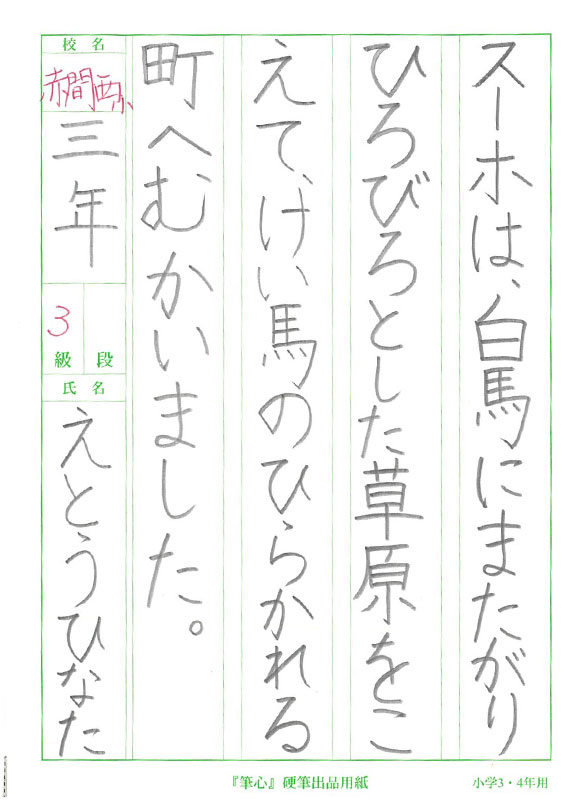 スーホは、白馬にまたがり
ひろびろとした草原をこ
えて、けい馬のひらかれる
町へむかいました。
校名
赤間西小
三年
3
級 段
氏名
えとうひなた
『筆心』硬筆出品用紙
小学3・4年用